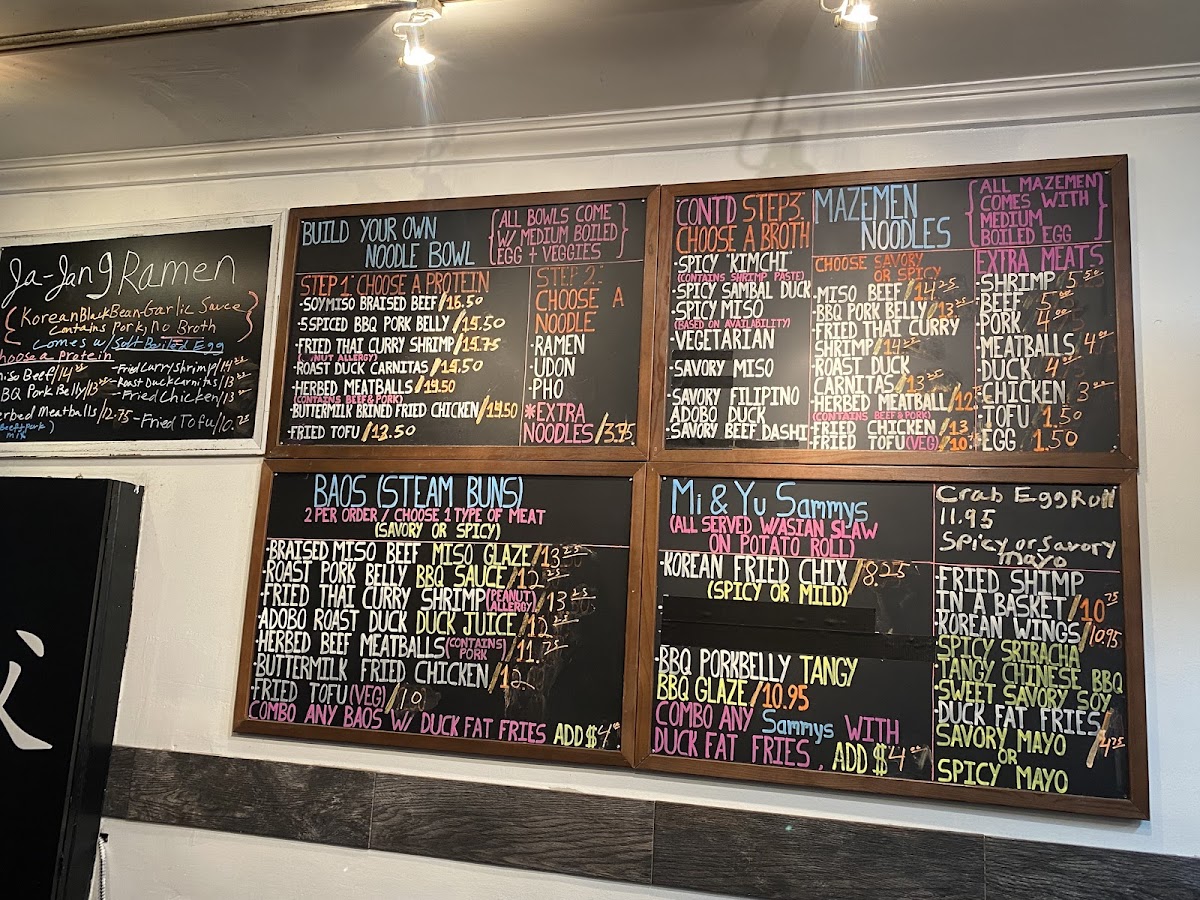 Ja-Jang Ramen
{Korean Black Bean Garlic Sauce}
Contains Pork, No Broth
Comes w/ Soft Boiled Egg
hoose a Protein
iso Beef/14
BQ Pork Belly/13
erbed Meatballs/12.75
Beef+pork)
mix
-Fried Curry Shrimp/14
-Roast Duck Carnitas/13
-Fried Chicken/13
-Fried Tofu/10.75
BUILD YOUR OWN
NOODLE BOWL
{ALL BOWLS COME
W/ MEDIUM BOILED
EGG + VEGGIES}
STEP 1: CHOOSE A PROTEIN
·SOY MISO BRAISED BEEF/16.50
·5 SPICED BBQ PORK BELLY/15.50
·FRIED THAI CURRY SHRIMP/15.75
NUT ALLERGY)
·ROAST DUCK CARNITAS/15.50
·HERBED MEATBALLS/15.50
(CONTAINS BEEF & PORK)
·BUTTERMILK BRINED FRIED CHICKEN/15.50
·FRIED TOFU/13.50
STEP 2:
CHOOSE A
NOODLE
·RAMEN
·UDON
·PHO
*EXTRA
NOODLES/3.75
CONTD STEP 3:
CHOOSE A BROTH
·SPICY "KIMCHI"
(CONTAINS SHRIMP PASTE)
·SPICY SAMBAL DUCK
·SPICY MISO
(BASED ON AVAILABILITY)
·VEGETARIAN
·SAVORY MISO
·SAVORY FILIPINO
ADOBO DUCK
·SAVORY BEEF DASHI
MAZEMEN
NOODLES
{ALL MAZEMEN
COMES WITH
MEDIUM
BOILED EGG}
CHOOSE SAVORY
OR SPICY
·MISO BEEF/14.25
·BBQ PORK BELLY/13.25
·FRIED THAI CURRY
SHRIMP/14.25
·ROAST DUCK
CARNITAS/13.25
·HERBED MEATBALL/12
(CONTAINS BEEF & PORK)
·FRIED CHICKEN/13
·FRIED TOFU (VEG)/10
EXTRA MEATS
·SHRIMP 5.50
·BEEF/5.00
·PORK/4.00
·MEATBALLS/4.00
·DUCK/4.00
·CHICKEN/3
·TOFU/1.50
·EGG/1.50
BAOS (STEAM BUNS)
2 PER ORDER / CHOOSE 1 TYPE OF MEAT
(SAVORY OR SPICY)
·BRAISED MISO BEEF MISO GLAZE/13.25
·ROAST PORK BELLY BBQ SAUCE/12.25
·FRIED THAI CURRY SHRIMP (PEANUT ALLERGY)/13.25
·ADOBO ROAST DUCK DUCK JUICE/12.25
·HERBED BEEF MEATBALLS (CONTAINS PORK)/11.75
·BUTTERMILK FRIED CHICKEN/12
·FRIED TOFU (VEG)/10
COMBO ANY BAOS W/ DUCK FAT FRIES ADD $4
Mi & Yu Sammys
(ALL SERVED W/ASIAN SLAW
ON POTATO ROLL)
·KOREAN FRIED CHIX/8.25
(SPICY OR MILD)
·BBQ PORKBELLY TANGY
BBQ GLAZE/10.95
COMBO ANY Sammys WITH
DUCK FAT FRIES, ADD $4
Crab Egg Roll
11.95
Spicy or Savory
mayo
·FRIED SHIMP
IN A BASKET/10.75
·KOREAN WINGS/10.95
SPICY SRIRACHA
TANGY CHINESE BBQ
·SWEET SAVORY SOY
DUCK FAT FRIES/4.25
SAVORY MAYO
OR
SPICY MAYO